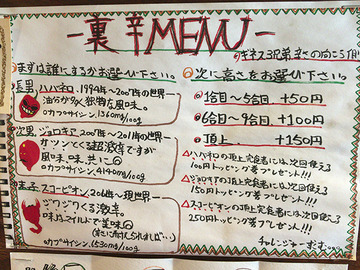 -裏辛MENU-
ギネス3兄弟 辛さの向こう側
①まずは誰にするかお選び下さい。
長男 ハバネロ. 1994年〜2007年の世界一
油分が多く独特な風味。
カプサイシン. 1360mg/100g
次男. ジョロキア. 2007年〜2011年の世界一
ガツンとくる超激辛ですが
風味、味、共に◎
カプサイシン. 4140mg/100g
スコーピオン. 現世界一
ジワジワくる激辛。
味もマイルドで美味◎
カプサイシン. 1530mg/100g
②次に高さをお選び下さい。
1合目〜5合目. +50円
6合目〜9合目 +100円
頂上 +150円
△ハバネロの頂上完食者には次回使える
100円トッピング券プレゼント!!!
△ジョロキアの頂上完食者には次回使える
150円トッピング券プレゼント!!!
△スコーピオンの頂上完食者には次回使える
250円トッピング券プレゼント!!!
チャレンジャー求む